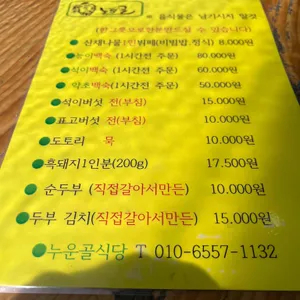 ※ 음식물은 남기시지 말것
(한그릇으로한분만드실 수 없습니다)
● 산채나물1인뷔페(비빔밥.정식) 8.000원
●능이백숙 (1시간전 주문) 80.000원
●석이백숙 (1시간전 주문) 60.000원
● 약초백숙(1시간전 주문) 50.000원
●석이버섯 전(부침) 15.000원
●표고버섯 전(부침) 10.000원
●도토리 묵 10.000원
●흑돼지1인분(200g) 17.500원
● 순두부 (직접갈아서만든) 10.000원
●두부 김치(직접갈아서만든) 15.000원
●누운골식당 T 010-6557-1132